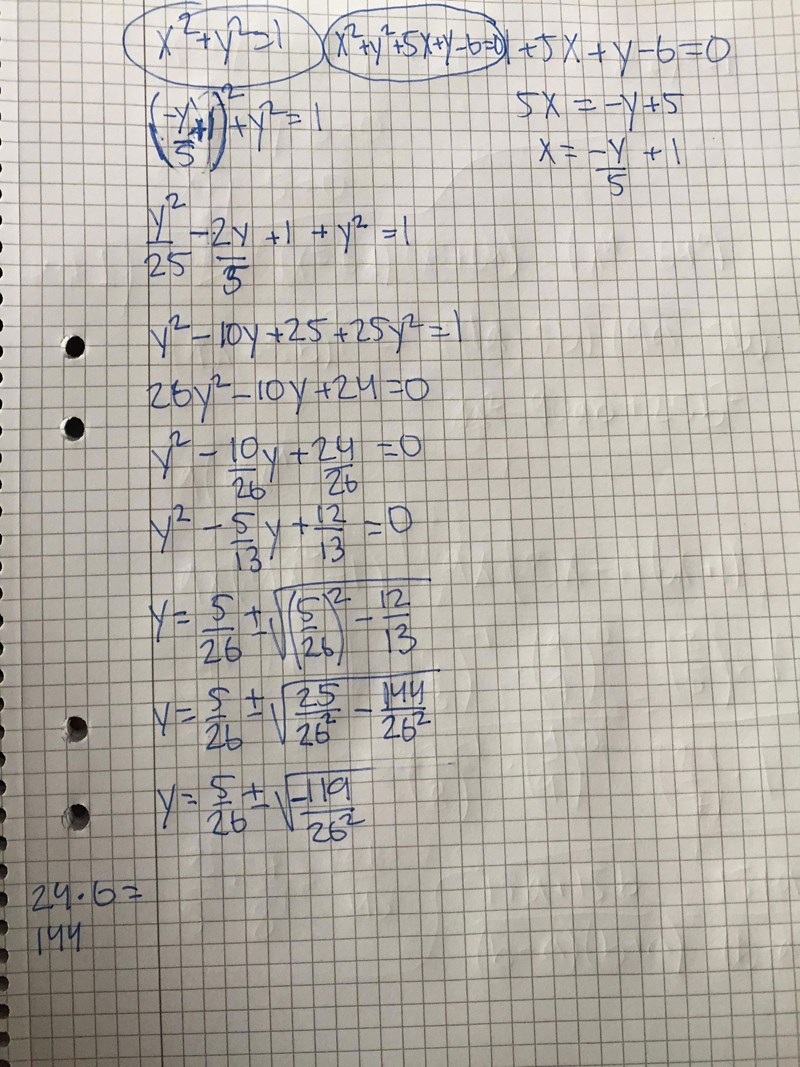 x²+y²=1 x²+y²+5x+y-6=0 1+5x+y-6=0
(-y/5+1)²+y²=1 5x=-y+5
x=-y/5+1
y²/25-2y/5+1+y²=1
y²-10y+25+25y²=1
26y²-10y+24=0
y²-10/26y+24/26=0
y²-5/13y+12/13=0
y=5/26±√((5/26)²-12/13)
y=5/26±√(25/26²-144/26²)
y=5/26±√(-119/26²)
24·6=
144